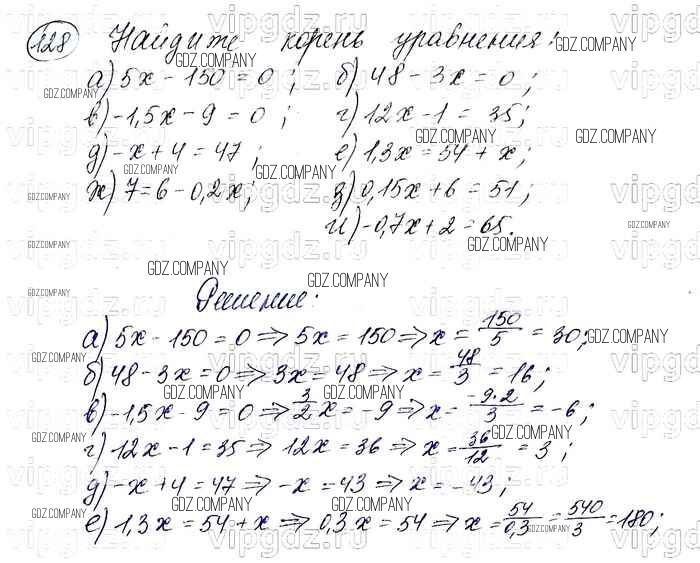 128 Найдите корень уравнения:
а) 5x - 150 = 0; б) 48 - 3x = 0;
в) -1,5x - 9 = 0; г) 12x - 1 = 35;
д) -x + 4 = 47; е) 1,3x = 54 + x;
ж) 7 = 6 - 0,2x; з) 0,15x + 6 = 51;
и) -0,7x + 2 = 65.
Решение:
а) 5x - 150 = 0 => 5x = 150 => x = 150/5 = 30;
б) 48 - 3x = 0 => 3x = 48 => x = 48/3 = 16;
в) -1,5x - 9 = 0 => 3/2 x = -9 => x = -9·2/3 = -6;
г) 12x - 1 = 35 => 12x = 36 => x = 36/12 = 3;
д) -x + 4 = 47 => -x = 43 => x = -43;
е) 1,3x = 54 + x => 0,3x = 54 => x = 54/0,3 = 540/3 = 180;
GDZ.COMPANY
vipgdz.ru